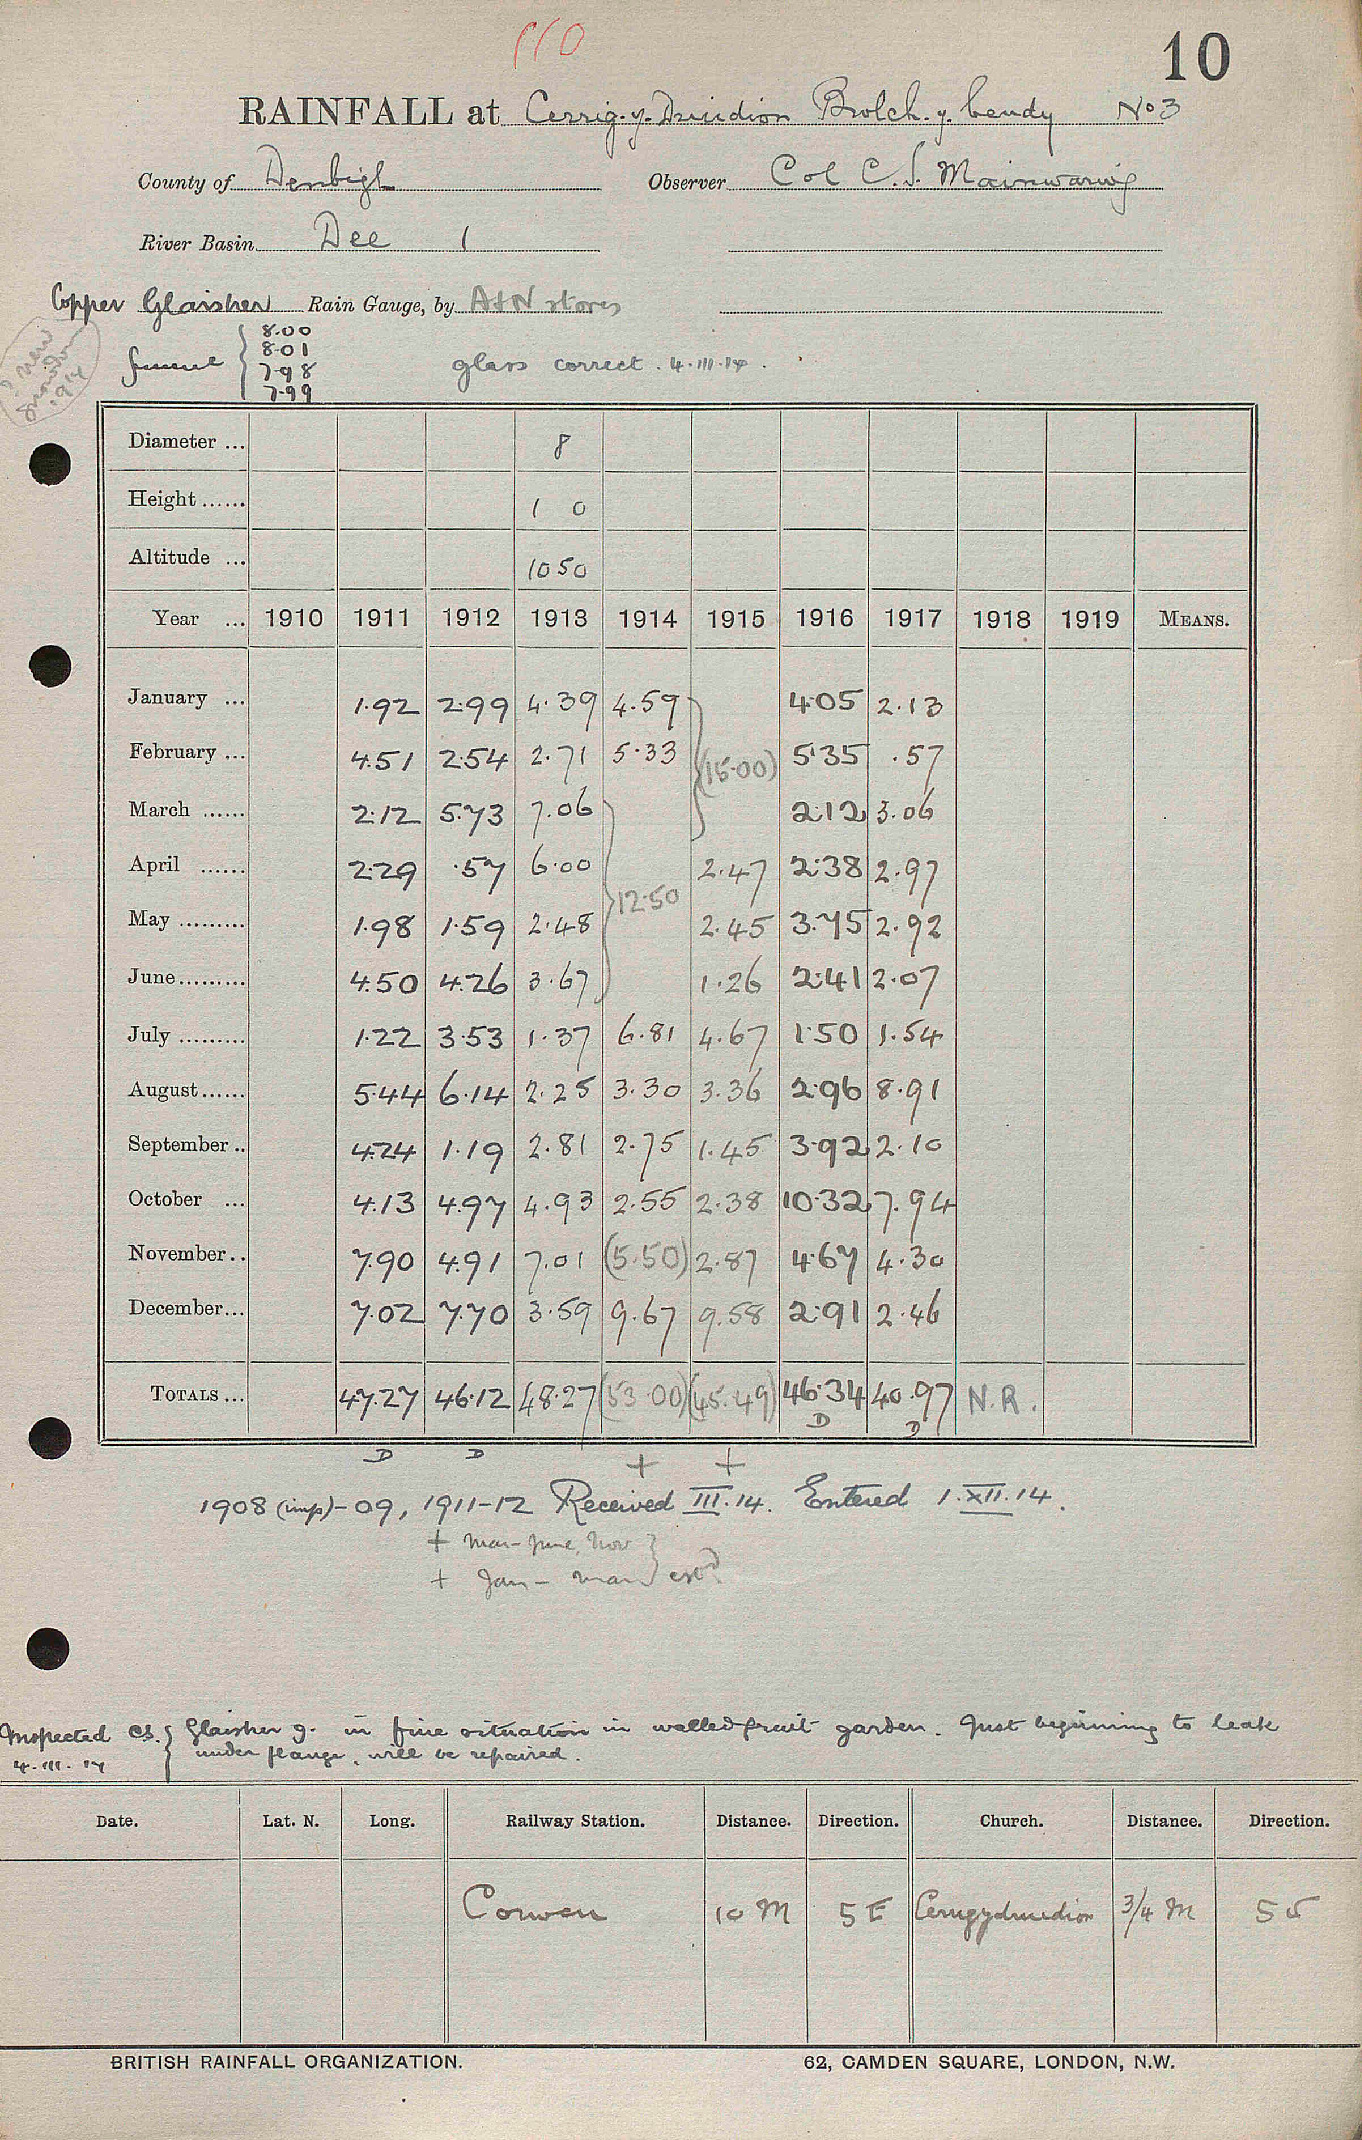 110
10
RAINFALL at Cerrig-y-Druidion Bwlch-y-beudy No 3
County of Denbigh Observer Col C. S. Mainwaring
River Basin Dee 1
Copper Glaisher Rain Gauge, by A&N stores
funnel { 8.00
8.01
7.98
7.99
glass correct. 4.III.14.
Diameter ... 8
Height ...... 1 0
Altitude ... 1050
Year ... 1910 1911 1912 1913 1914 1915 1916 1917 1918 1919 MEANS.
January ... 1.92 2.99 4.39 4.59 4.05 2.13
February ... 4.51 2.54 2.71 5.33 (15.00) 5.35 .57
March ...... 2.12 5.73 7.06 2.12 3.06
April ...... 2.29 .57 6.00 2.47 2.38 2.97
May ......... 1.98 1.59 2.48 12.50 2.45 3.75 2.92
June......... 4.50 4.26 3.67 1.26 2.41 2.07
July ......... 1.22 3.53 1.37 6.81 4.67 1.50 1.54
August...... 5.44 6.14 2.25 3.30 3.36 2.96 8.91
September .. 4.24 1.19 2.81 2.75 1.45 3.92 2.10
October ... 4.13 4.97 4.93 2.55 2.38 10.32 7.94
November.. 7.90 4.91 7.01 (5.50) 2.87 4.67 4.30
December... 7.02 7.70 3.59 9.67 9.58 2.91 2.46
TOTALS ... 47.27 46.12 48.27 (53.00) (45.49) 46.34 40.97 N.R.
D D + + D D
1908 (imp)-09, 1911-12 Received III.14. Entered 1.XII.14.
+ Mar-June, Nov }
+ Jan - Mar } estd
Inspected CS. { Glaisher g. in fine situation in walled fruit garden. Just beginning to leak
4.III.14 under flange, will be repaired.
Date. Lat. N. Long. Railway Station. Distance. Direction. Church. Distance. Direction.
Corwen 10 M SE Cerrigydruidion 3/4 M SS
BRITISH RAINFALL ORGANIZATION. 62, CAMDEN SQUARE, LONDON, N.W.